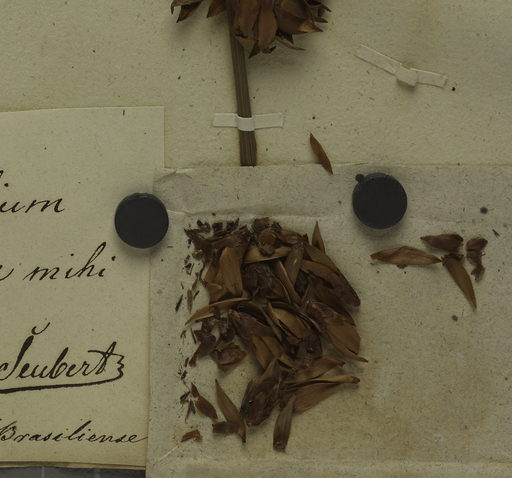 ium
mihi
Seubert
Brasiliense